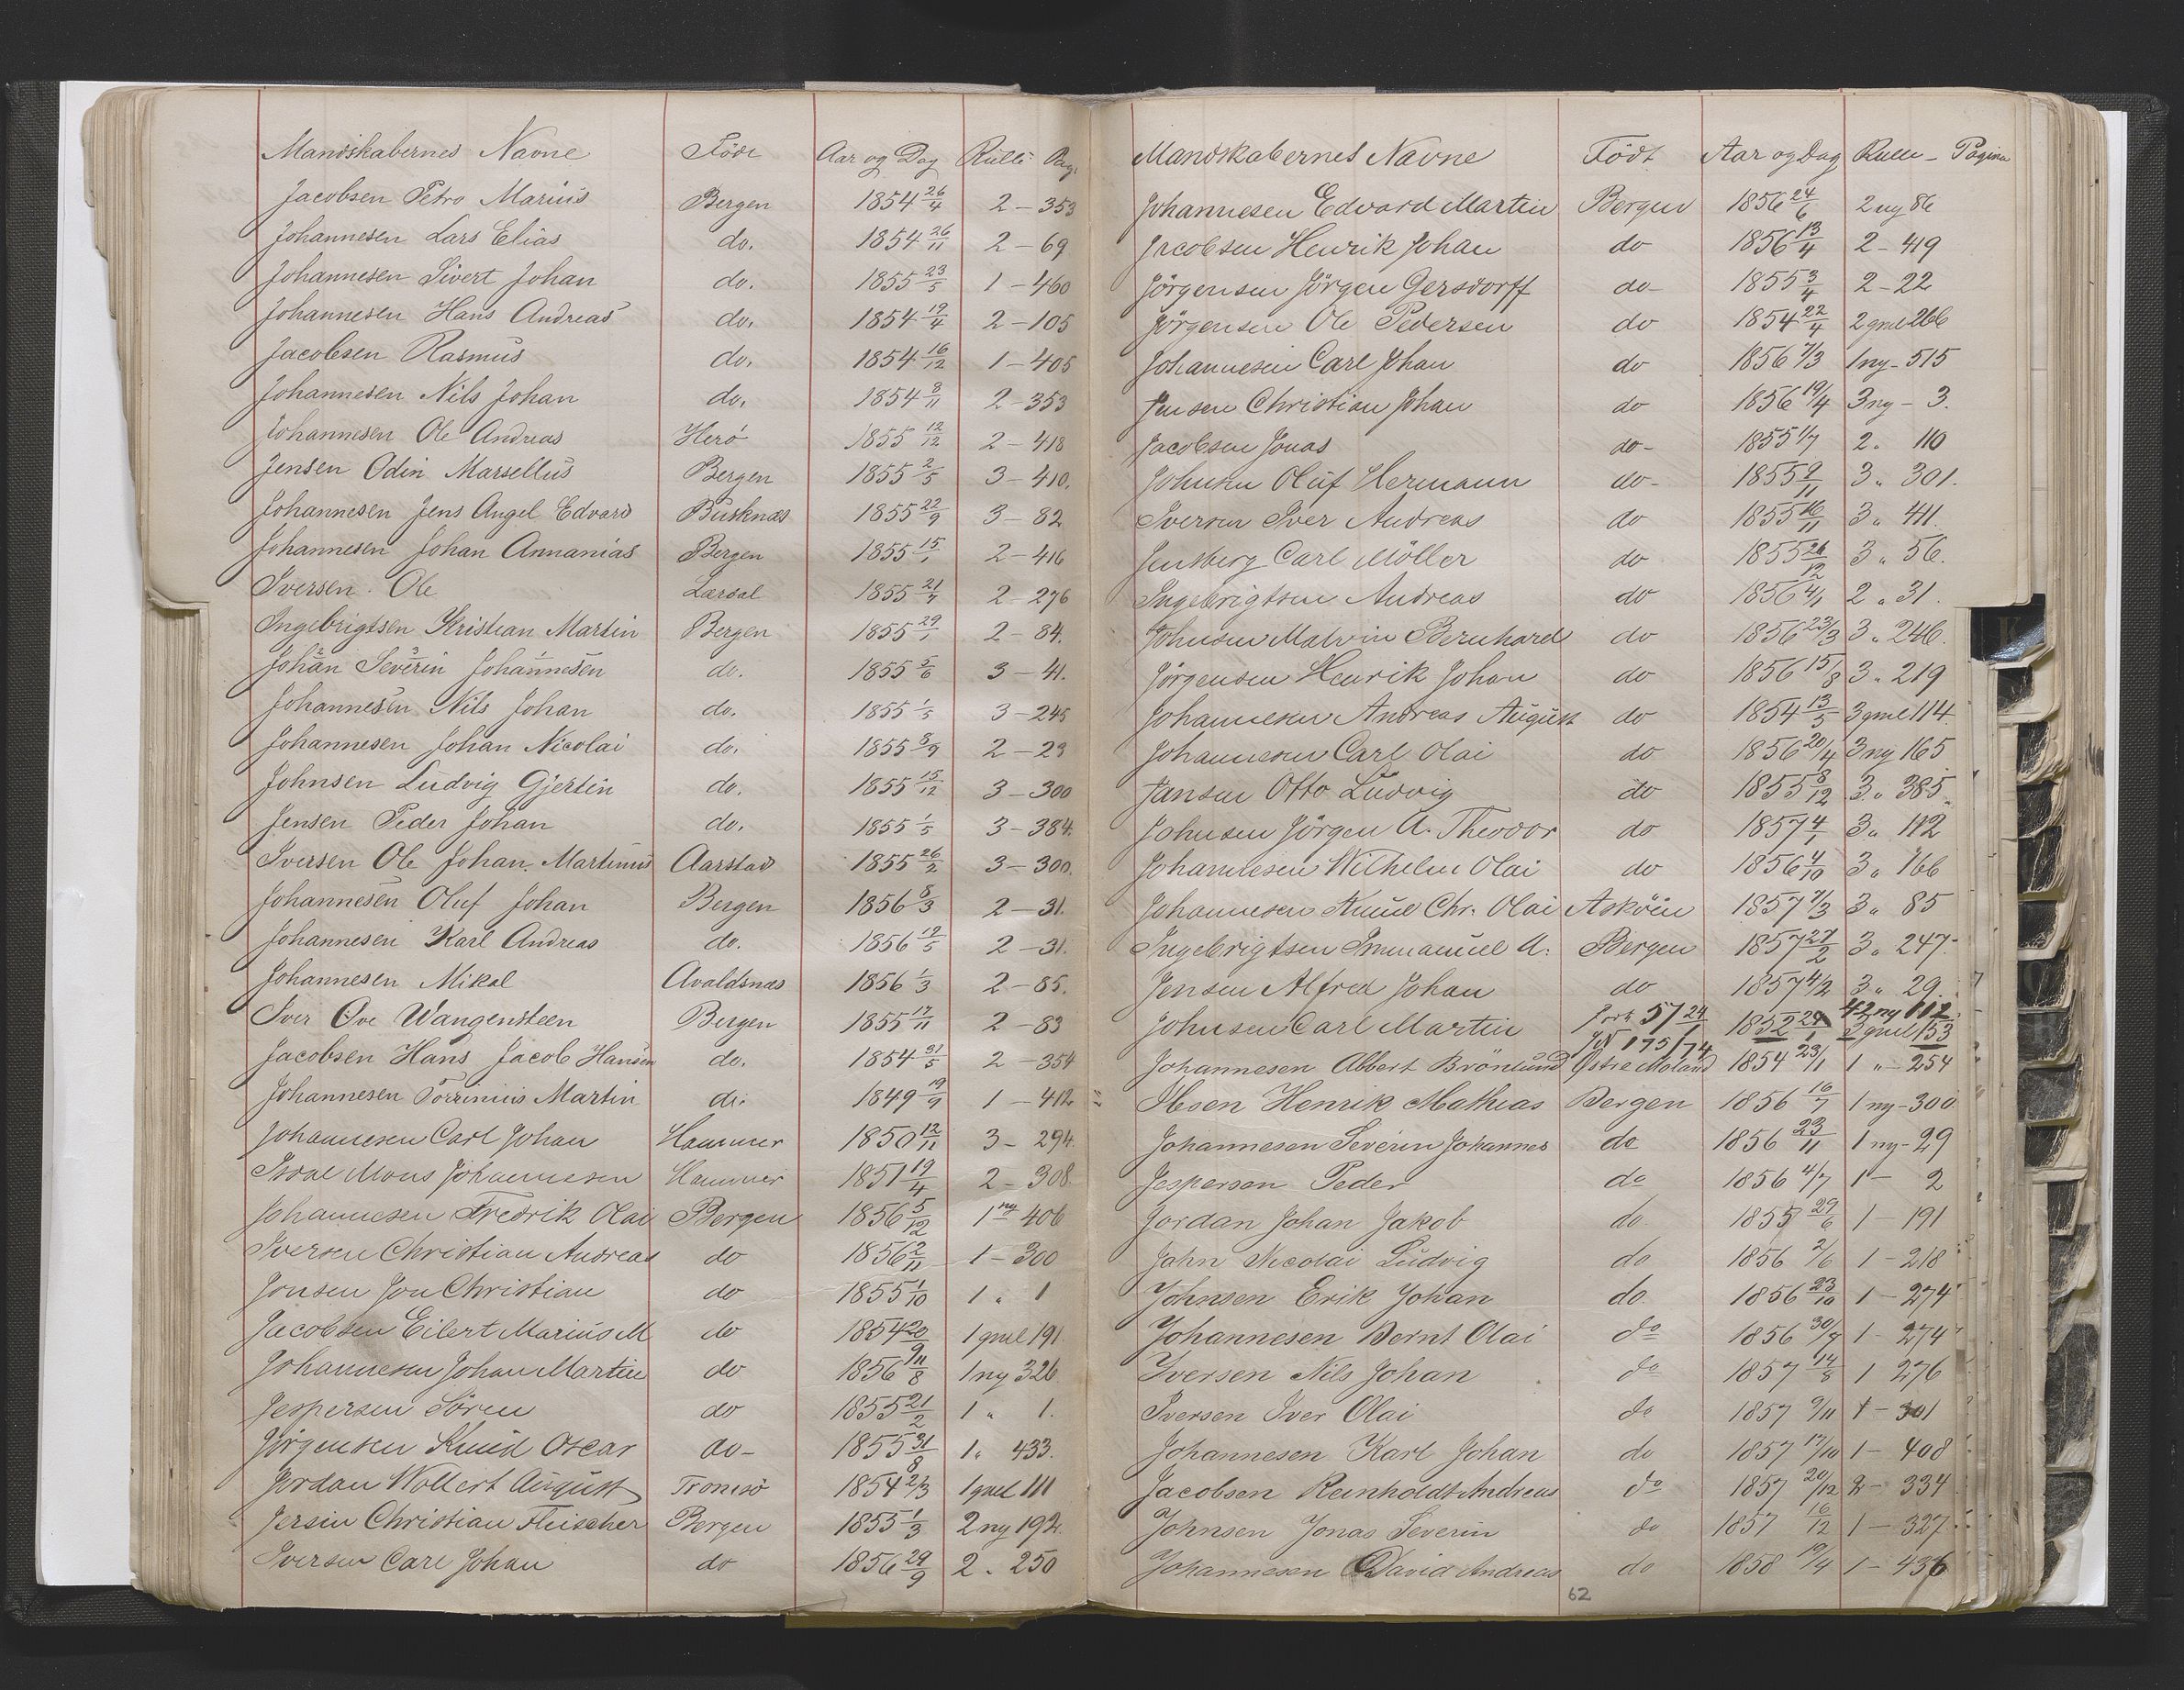 Mandskabernes Navne Födt Aar og Dag Rulle Pag.
Jacobsen Petro Marius Bergen 1854 26/4 2 – 353
Johannesen Lars Elias do. 1854 26/11 2 – 69
Johannesen Sivert Johan do. 1855 23/5 1 – 460
Johannesen Hans Andreas do. 1854 19/4 2 – 105
Jacobsen Rasmus do. 1854 16/12 1 – 405
Johannesen Nils Johan do. 1854 8/11 2 – 353
Johannesen Ole Andreas Herö 1855 12/12 2 – 418
Jensen Odin Marsellus Bergen 1855 2/5 3 – 410.
Johannesen Jens Angel Edvard Busknæs 1855 22/9 3 – 82
Johannesen Johan Annanias Bergen 1855 15/1 2 – 416
Iversen Ole Lærdal 1855 21/7 2 – 276
Ingebrigtsen Kristian Martin Bergen 1855 29/1 2 – 84.
Johan Severin Johannesen do. 1855 5/6 3 – 41.
Johannesen Nils Johan do. 1855 1/5 3 – 245
Johannesen Johan Nicolai do. 1855 8/9 2 – 23
Johnsen Ludvig Gjertin do. 1855 15/12 3 – 300
Jensen Peder Johan do. 1855 1/5 3 – 384.
Iversen Ole Johan. Martinus Aarstad 1855 26/2 3 – 300.
Johannesen Oluf Johan Bergen 1856 8/3 2 – 31.
Johannesen Karl Andreas do. 1856 19/5 2 – 31.
Johannesen Mikal Avaldsnæs 1856 1/3 2 – 85.
Iver Ove Wangensteen Bergen 1855 17/11 2 – 83
Jacobsen Hans Jacob Hansen do. 1854 31/5 2 – 354
Johannesen Torrinius Martin do: 1849 19/9 1 – 412
Johannesen Carl Johan Hammer 1850 12/11 3 – 294.
Isdal Mons Johannesen Hammer 1851 19/4 2 – 308.
Johannesen Fredrik Olai Bergen 1856 5/12 1 ny 406
Iversen Christian Andreas do 1856 2/11 1 – 300
Jonsen Jon Christian do 1855 1/10 1 " 1
Jacobsen Eilert Marius M do 1854 20/9 1 gml 191
Johannesen Johan Martin do 1856 11/8 1 ny 326
Jespersen Sören do 1855 21/2 1 " 1.
Jörgensen Knud Oscar do– 1855 31/8 1 " 433.
Jordan Wollert August Tromsö 1854 2/3 1 gml 111
Jersin Christian Fleischer Bergen 1855 1/3 2 ny 192.
Iversen Carl Johan do 1856 29/9 2 " 250
Mandskabernes Navne Födt Aar og Dag Rulle – Pagina
Johannesen Edvard Martin Bergen 1856 24/6 2 ny 86
Jacobsen Henrik Johan do 1856 13/4 2 – 419
Jörgensen Jörgen Gersdorff do– 1855 3/4 2 – 22
Jörgensen Ole Pedersen do 1854 22/4 2 gml 266
Johannesen Carl Johan do 1856 7/3 1 ny – 515
Jensen Christian Johan do 1856 19/4 3 ny – 3.
Jacobsen Jonas do– 1855 1/7 2 " 110
Johnsen Oluf Hermann do– 1855 9/11 3 " 301.
Iversen Iver Andreas do 1855 16/11 3 " 411.
Jensberg Carl Möller do 1855 26/12 3 " 56.
Ingebrigtsen Andreas do 1856 4/1 2 " 31.
Johnsen Malvin Bernhard do 1856 23/3 3 " 246.
Jörgensen Henrik Johan do 1856 15/8 3 " 219
Johannesen Andreas August do 1854 13/5 3 gml 114.
Johannesen Carl Olai do 1856 20/4 3 ny 165
Jansen Otto Ludvig do 1855 8/12 3 " 385.
Johnsen Jörgen A. Theodor do 1857 4/1 3 " 112
Johannesen Wilhelm Olai do 1856 4/10 3 " 166
Johannesen Knud Chr. Olai Asköen 1857 7/3 3 " 85
Ingebrigtsen Immanuel A. Bergen 1857 27/2 3 " 247.
Jensen Alfred Johan do 1857 4/2 3 " 29.
Johnsen Carl Martin 57 24/1 1852 29/1 ny 112 2 gml 153
JN 175/74
Johannesen Albert Brönlund Östre Moland 1854 23/1 1 " – 254
Ibsen Henrik Mathias Bergen 1856 16/7 1 ny – 300
Johannesen Severin Johannes do 1856 23/11 1 ny – 29
Jespersen Peder do 1856 4/7 1 – 2
Jordan Johan Jakob do 1855 29/6 1 – 191
Jahn Nicolai Ludvig do 1856 2/6 1 – 218
Johnsen Erik Johan do. 1856 23/10 1 – 274
Johannesen Bernt Olai do 1856 30/8 1 – 274
Iversen Nils Johan do 1857 14/8 1 276
Iversen Iver Olai do 1857 9/11 1 – 301
Johannesen Karl Johan do 1857 17/10 1 – 408
Jacobsen Reinholdt Andreas do 1857 20/12 2 – 334
Johnsen Jonas Severin do 1857 16/12 1 – 327
Johannesen David Andreas do 1858 19/4 1 – 436
62
K